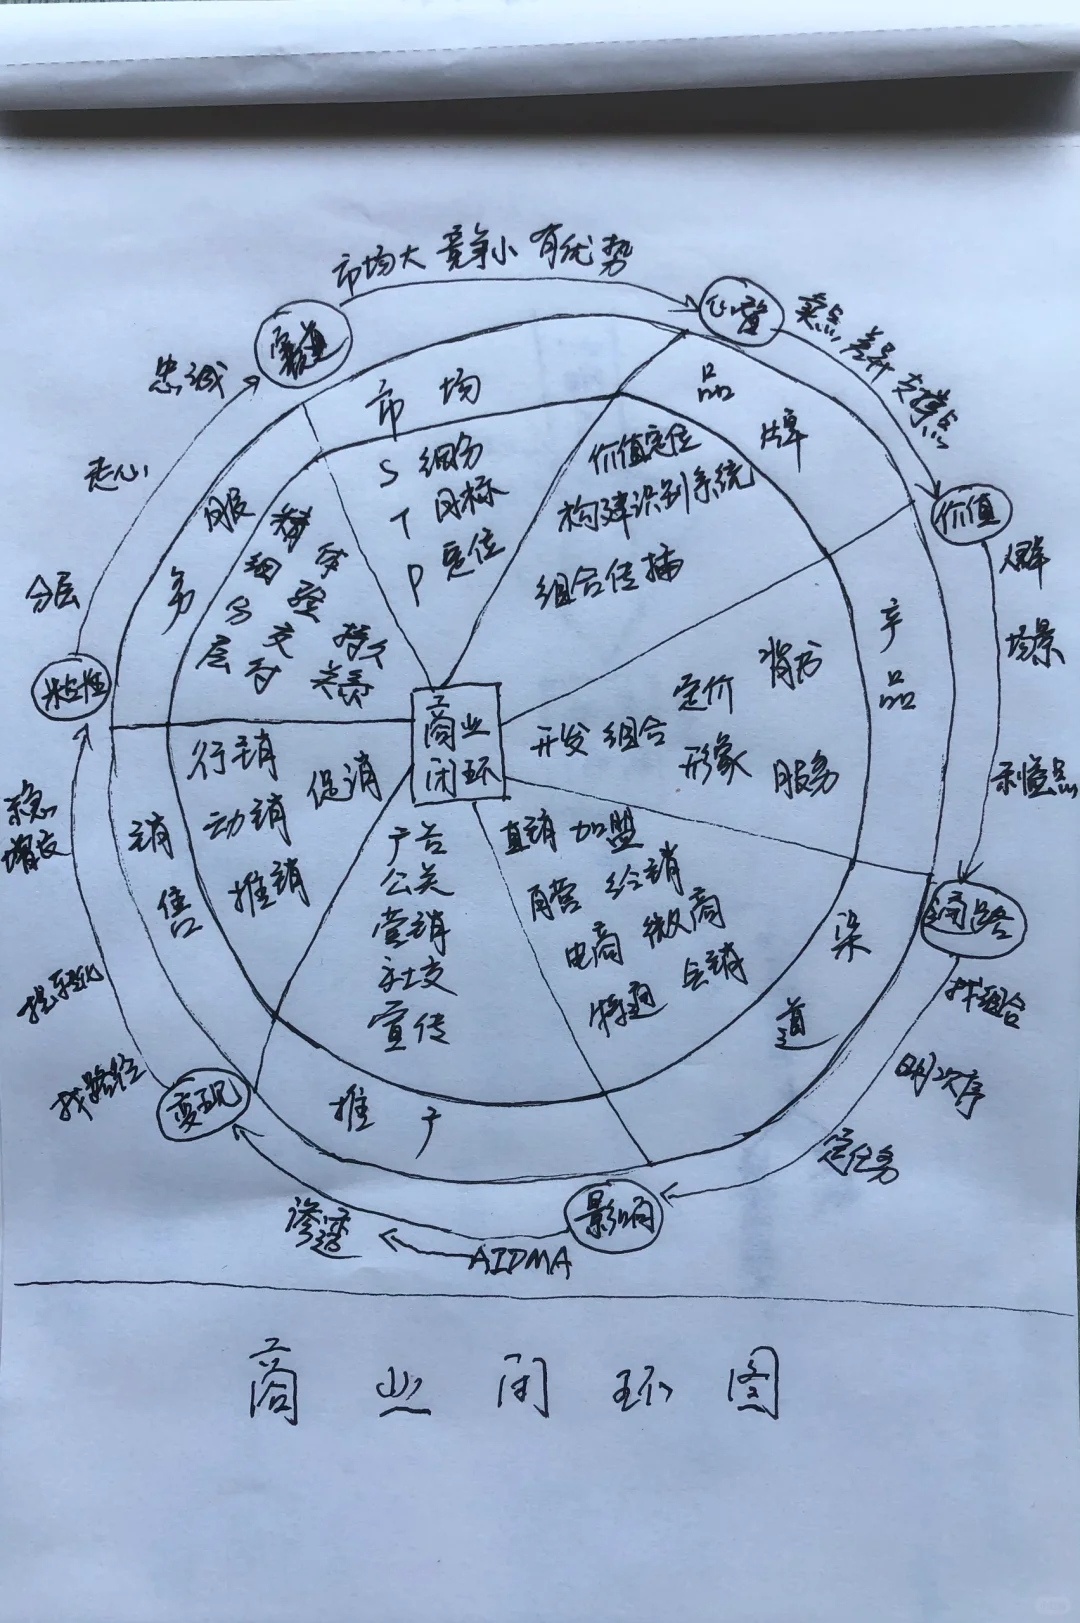 市场大 竞争小 有优势
心智
卖点 差异 支撑点
价值
人群
场景
利益点
通路
找组合
明次序
定任务
影响
AIDMA
渗透
变现
找路径
提转化
求稳
增长
粘性
分层
走心
忠诚
市场
S 细分
T 目标
P 定位
品牌
价值定位
构建识别系统
组合传播
产品
开发 组合
定价
形象
背书
服务
渠道
直销 加盟
电商 微商
会销
推广
广告
公关
营销
社交
宣传
销售
行销
动销
推销
促销
服务
精细分层
体验交付
持久关系
商业
闭环
商业闭环图